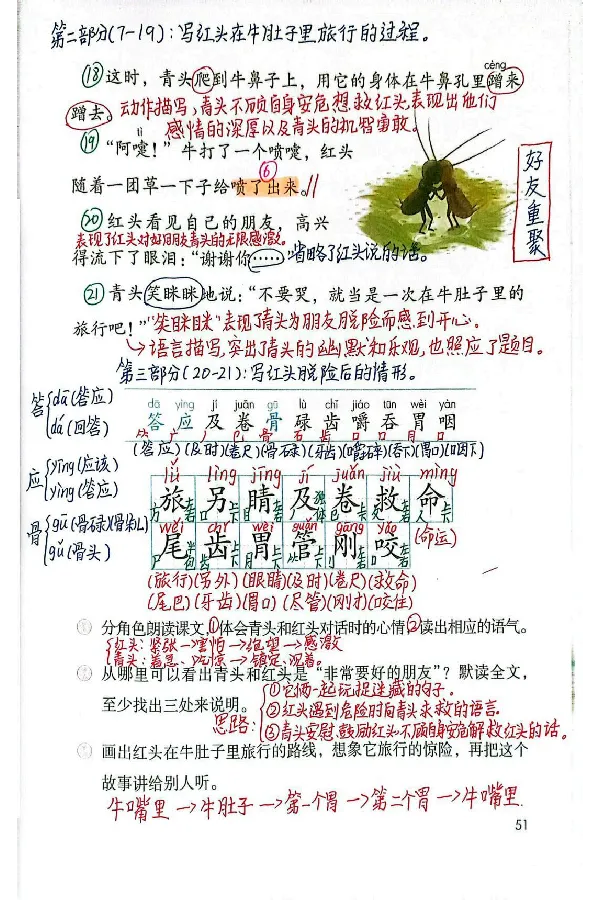 第二部分(7-19):写红头在牛肚子里旅行的过程。
cèng
⑱这时，青头爬到牛鼻子上，用它的身体在牛鼻孔里蹭来
蹭去。动作描写,青头不顾自身安危想救红头,表现出他们
感情的深厚以及青头的机智勇敢。
tì
⑲“阿嚏！”牛打了一个喷嚏，红头
⑥
随着一团草一下子给喷了出来。//
好友重聚
⑳红头看见自己的朋友，高兴
表现了红头对好朋友青头的无限感激。
得流下了眼泪：“谢谢你……”省略了红头说的话。
21 青头笑眯眯地说：“不要哭，就当是一次在牛肚子里的
旅行吧！”“笑眯眯”表现了青头为朋友脱险而感到开心。
→语言描写,突出了青头的幽默和乐观,也照应了题目。
第三部分(20-21):写红头脱险后的情形。
答 dā(答应) dá(回答)
dā yìng jí juǎn gū lù chǐ jiáo tūn wèi yàn
答 应 及 卷 骨 碌 齿 嚼 吞 胃 咽
(答应)(及时)(卷尺)(骨碌)(牙齿)(嚼碎)(吞下)(胃口)(咽下)
应 yīng(应该) yìng(答应)
lǚ lìng jīng jí juǎn jiù mìng
旅 另 睛 及 卷 救 命
骨 gū(骨碌)(骨朵儿) gǔ(骨头)
wěi chǐ wèi guǎn gāng yǎo
尾 齿 胃 管 刚 咬 (命运)
(旅行)(另外)(眼睛)(及时)(卷尺)(救命)
(尾巴)(牙齿)(胃口)(尽管)(刚才)(咬住)
分角色朗读课文,①体会青头和红头对话时的心情,②读出相应的语气。
红头:紧张→害怕→绝望→感激
青头:着急、吃惊→镇定、沉着。
从哪里可以看出青头和红头是“非常要好的朋友”？默读全文，
至少找出三处来说明。
思路:
①它俩一起玩捉迷藏的句子.
②红头遇到危险时向青头求救的语言.
③青头安慰、鼓励红头,不顾自身安危解救红头的话。
画出红头在牛肚子里旅行的路线，想象它旅行的惊险，再把这个
故事讲给别人听。
牛嘴里→牛肚子→第一个胃→第二个胃→牛嘴里.
51